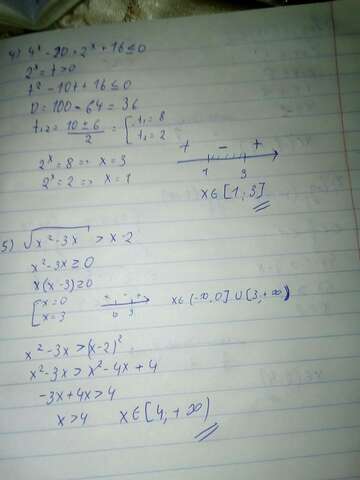 4) 4ˣ - 20 · 2ˣ + 16 ≤ 0
2ˣ = t > 0
t² - 10t + 16 ≤ 0
D = 100 - 64 = 36
t₁,₂ = (10 ± 6)/2 = [ t₁ = 8
t₁ = 2
2ˣ = 8 => x = 3
2ˣ = 2 => x = 1
+ - +
1 3
x ∈ [1; 3]
5) √(x² - 3x) > x - 2
x² - 3x ≥ 0
x(x - 3) ≥ 0
[ x = 0
x = 3
0 3
x ∈ (-∞, 0] ∪ [3, +∞)
x² - 3x > (x - 2)²
x² - 3x > x² - 4x + 4
-3x + 4x > 4
x > 4 x ∈ [4, +∞)